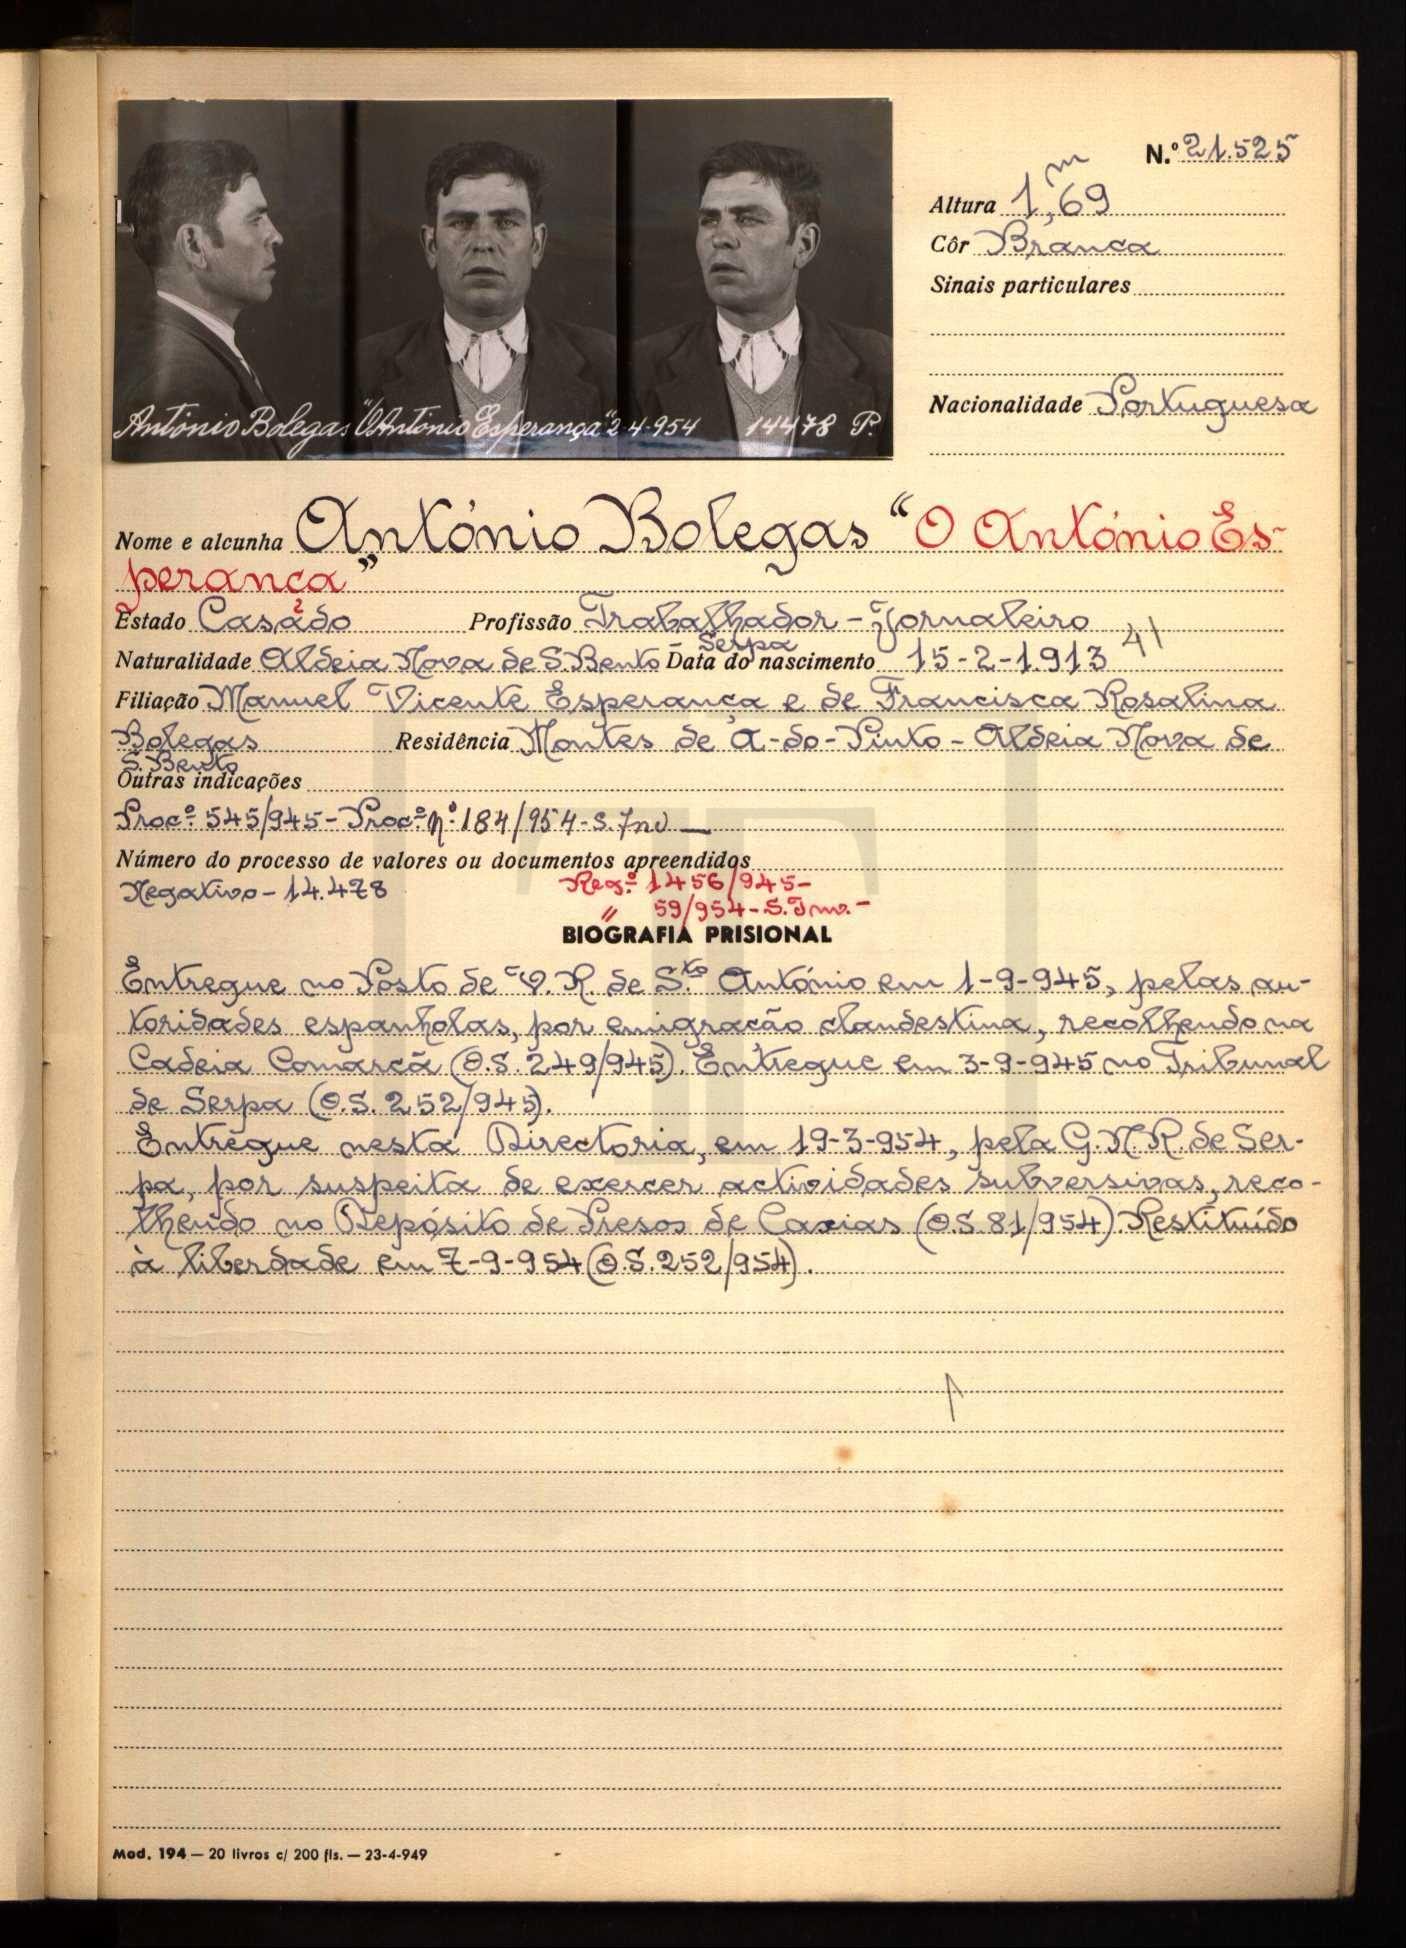 António Bolegas "O António Esperança" 2-4-954 14478 P.
N.º 21.525
Altura 1,69 m
Côr Branca
Sinais particulares
Nacionalidade Portuguesa
Nome e alcunha António Bolegas "O António Es-
perança"
Estado Casado Profissão Trabalhador - Jornaleiro
Naturalidade Aldeia Nova de S. Bento - Serpa Data do nascimento 15-2-1.913 41
Filiação Manuel Vicente Esperança e de Francisca Rosalina
Bolegas Residência Montes de A-do-Pinto - Aldeia Nova de
S. Bento
Outras indicações
Procº 545/945 - Procº nº 184/954 - S. Inv —
Número do processo de valores ou documentos apreendidos
Negativo - 14.478 Regº 1456/945 -
" 59/954 - S. Inv. -
BIOGRAFIA PRISIONAL
Entregue no Posto de V. R. de S.to António em 1-9-945, pelas au-
toridades espanholas, por emigração clandestina, recolhendo na
Cadeia Comarcã (O.S. 249/945). Entregue em 3-9-945 no Tribunal
de Serpa (O.S. 252/945).
Entregue nesta Directoria, em 19-3-954, pela G.N.R. de Ser-
pa, por suspeita de exercer actividades subversivas, reco-
lhendo no Depósito de Presos de Caxias (O.S. 81/954). Restituído
à liberdade em 7-9-954 (O.S. 252/954).
Mod. 194 — 20 livros c/ 200 fls. — 23-4-949